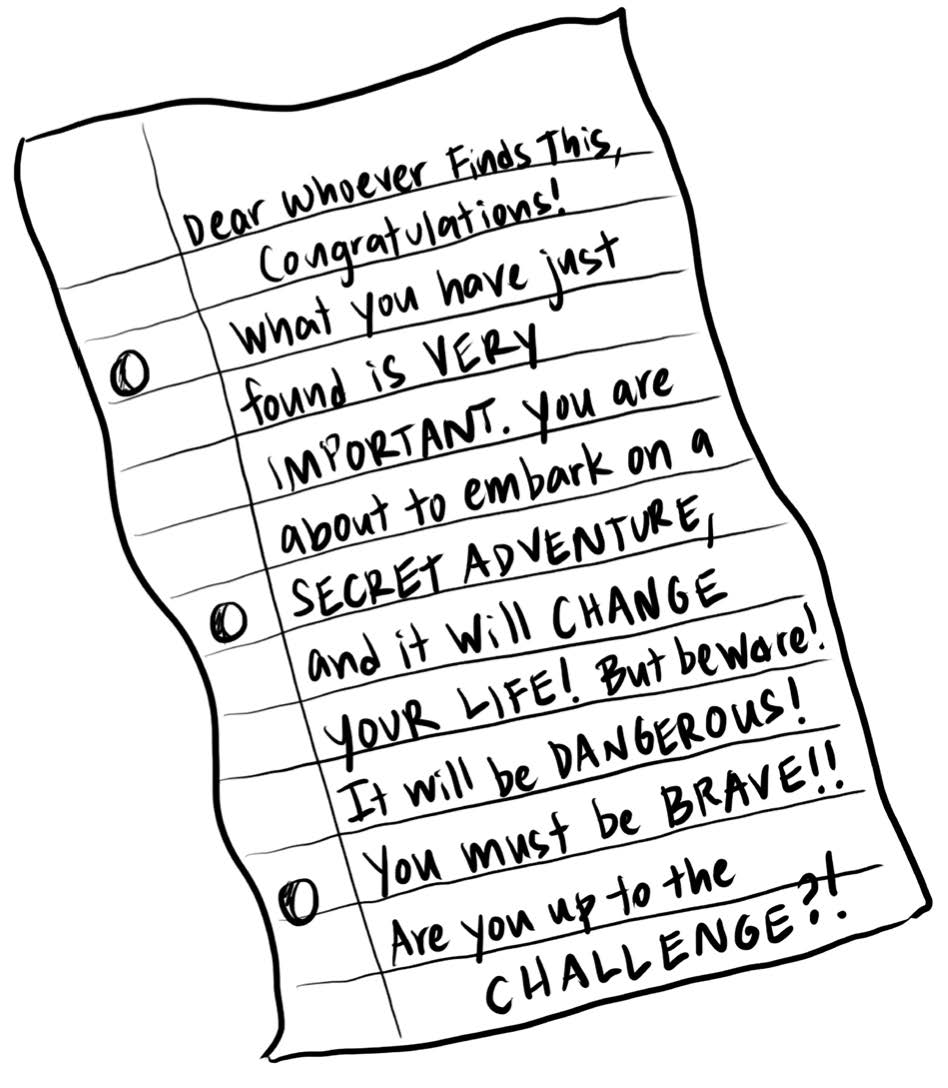 Dear Whoever Finds This,
Congratulations!
What you have just
found is VERY
IMPORTANT. You are
about to embark on a
SECRET ADVENTURE,
and it will CHANGE
YOUR LIFE! But beware!
It will be DANGEROUS!
You must be BRAVE!!
Are you up to the
CHALLENGE?!